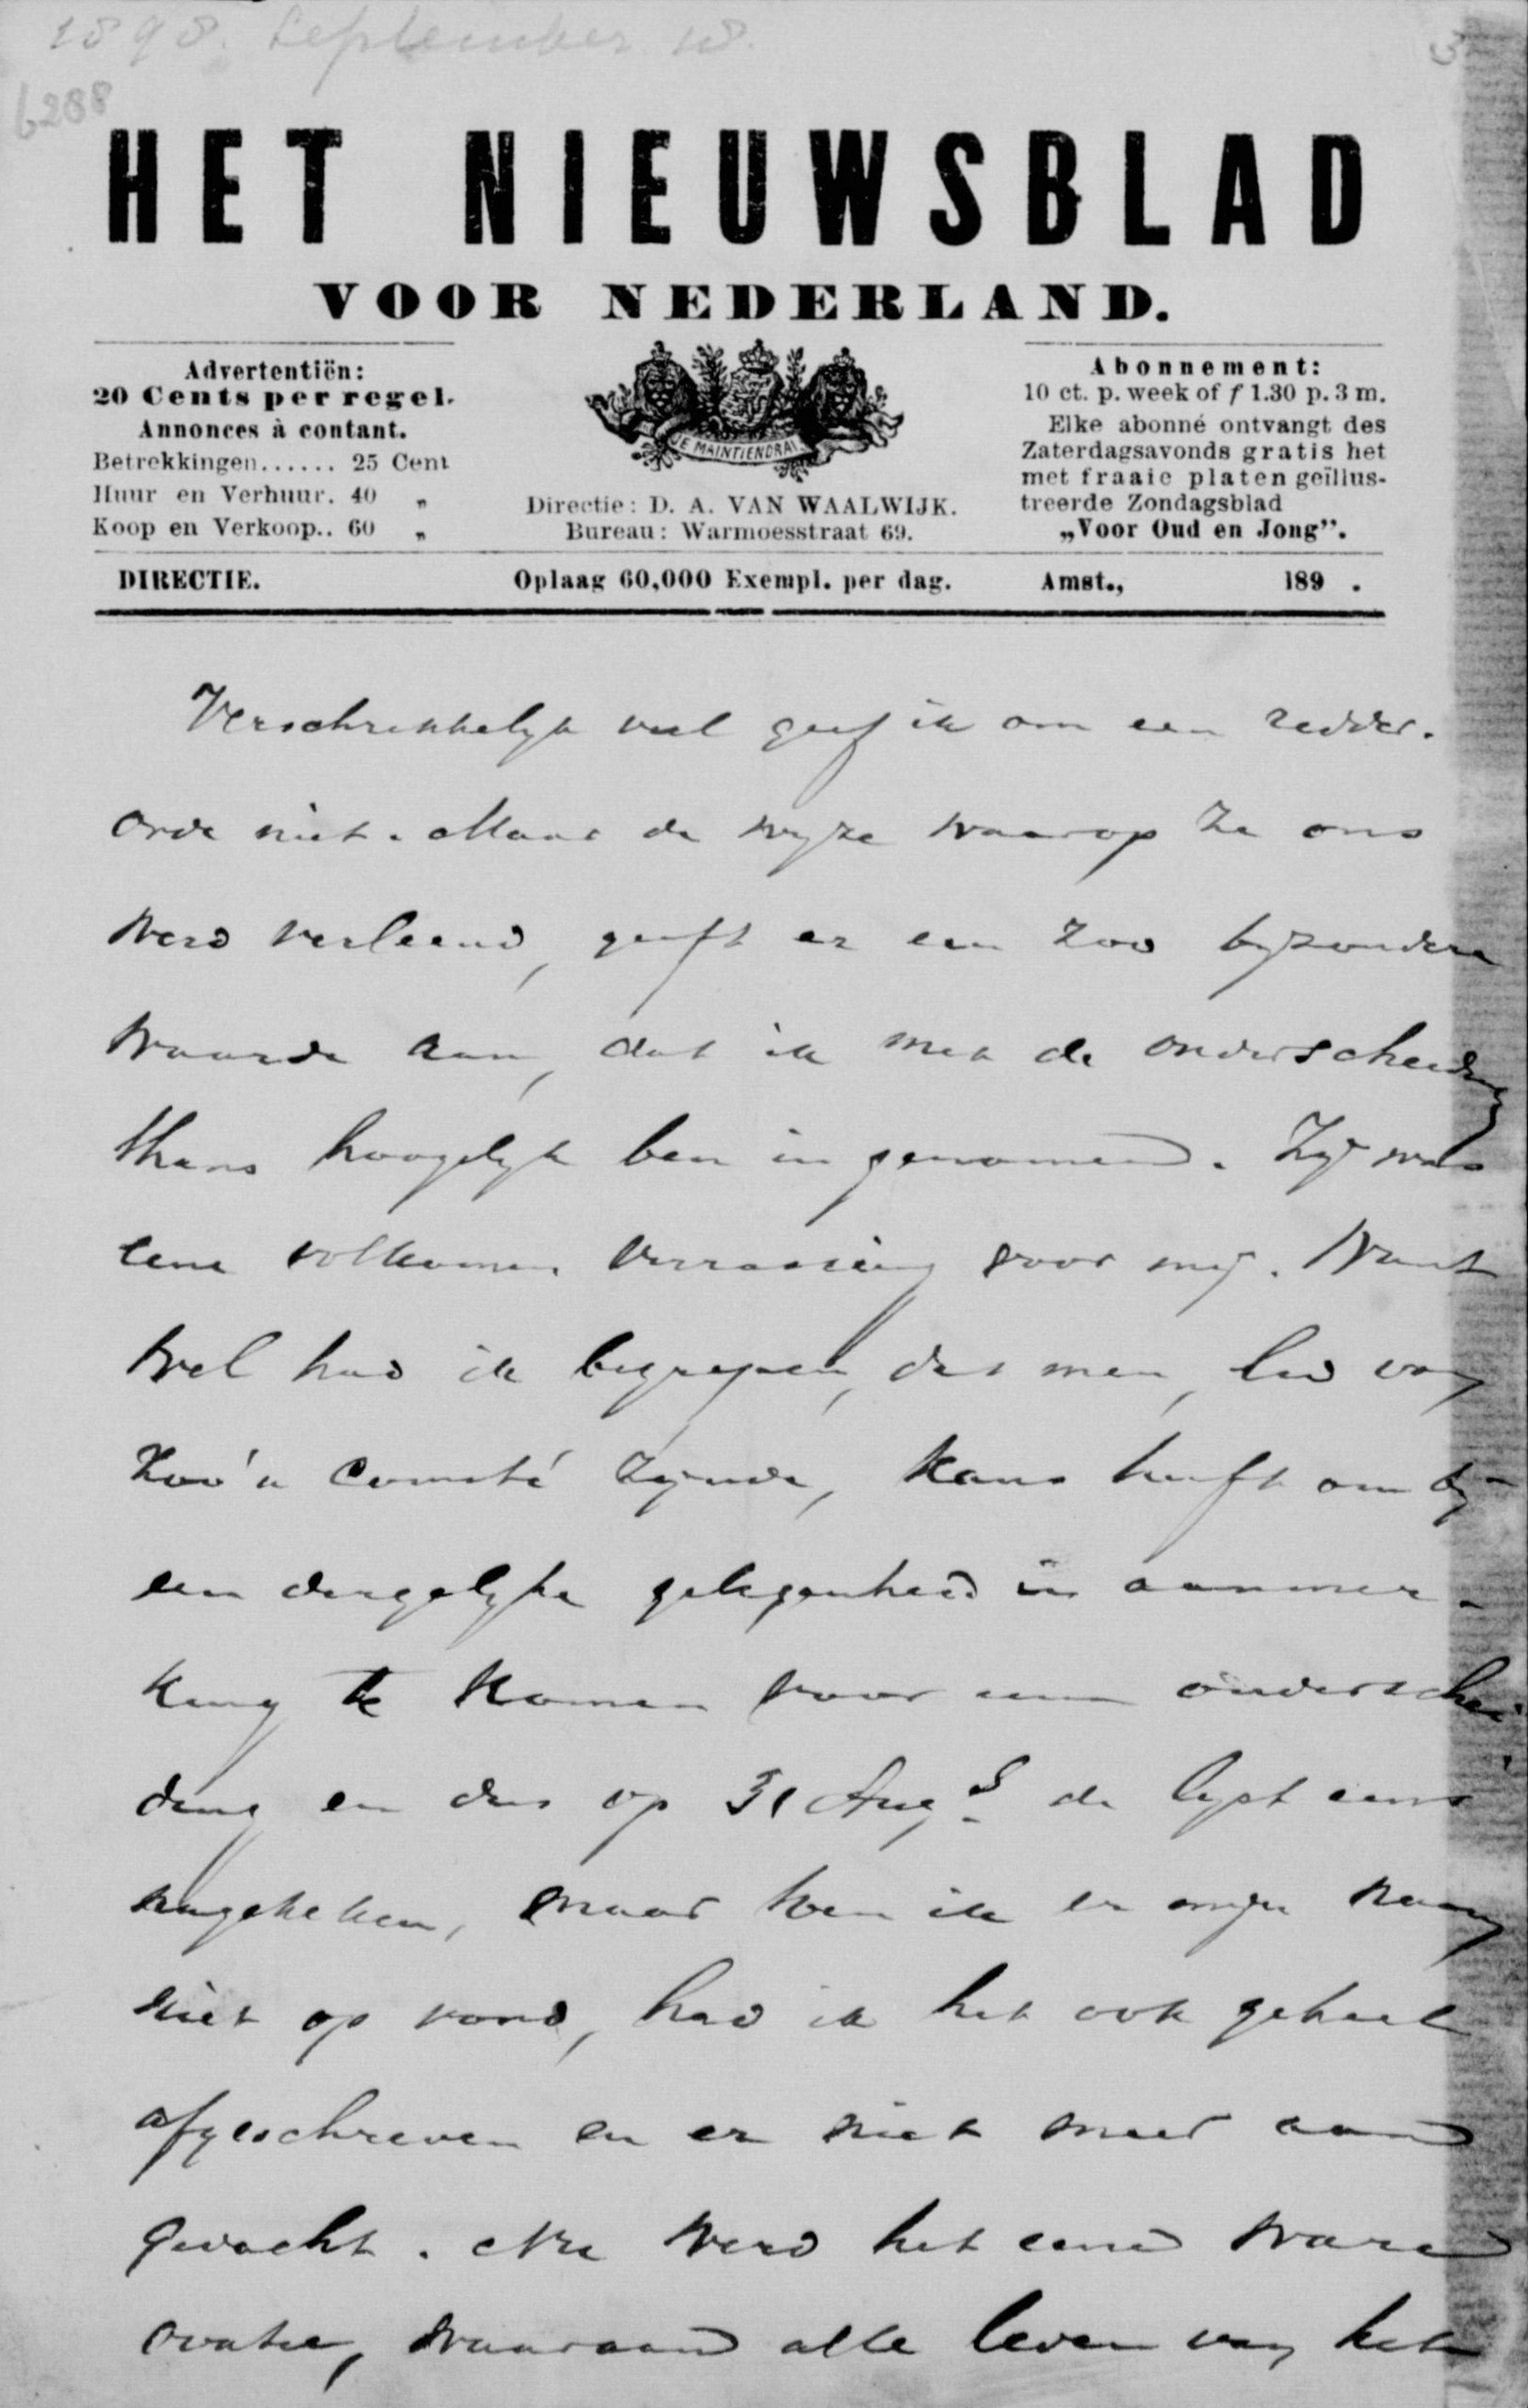 1898. September 18.
b288
HET NIEUWSBLAD
VOOR NEDERLAND.
Advertentiën:
20 Cents per regel.
Annonces à contant.
Betrekkingen...... 25 Cent
Huur en Verhuur. 40 „
Koop en Verkoop.. 60 „
JE MAINTIENDRAI
Directie: D. A. VAN WAALWIJK.
Bureau: Warmoesstraat 69.
Abonnement:
10 ct. p. week of f 1.30 p. 3 m.
Elke abonné ontvangt des
Zaterdagsavonds gratis het
met fraaie platen geïllus-
treerde Zondagsblad
„Voor Oud en Jong”.
DIRECTIE. Oplaag 60,000 Exempl. per dag. Amst., 189 .
Verschrikkelijk veel geef ik om een ridder-
orde niet. Maar de wijze waarop ze ons
werd verleend, geeft er een zoo bijzondere
waarde aan, dat ik met de onderscheiding
thans hoogelijk ben ingenomen. Zij was
eene volkomen verrassing voor mij. Want
wel had ik begrepen, dat men, lid van
zoo'n Comité zijnde, kans heeft om bij
een dergelijke gelegenheid in aanmer-
king te komen voor een onderschei-
ding en dus op 31 Augs de lijst eens
nagekeken, maar toen ik er mijn naam
niet op vond, had ik het ook geheel
afgeschreven en er niet meer aan
gedacht. Nu werd het eene ware
ovatie, waaraan alle leden van het